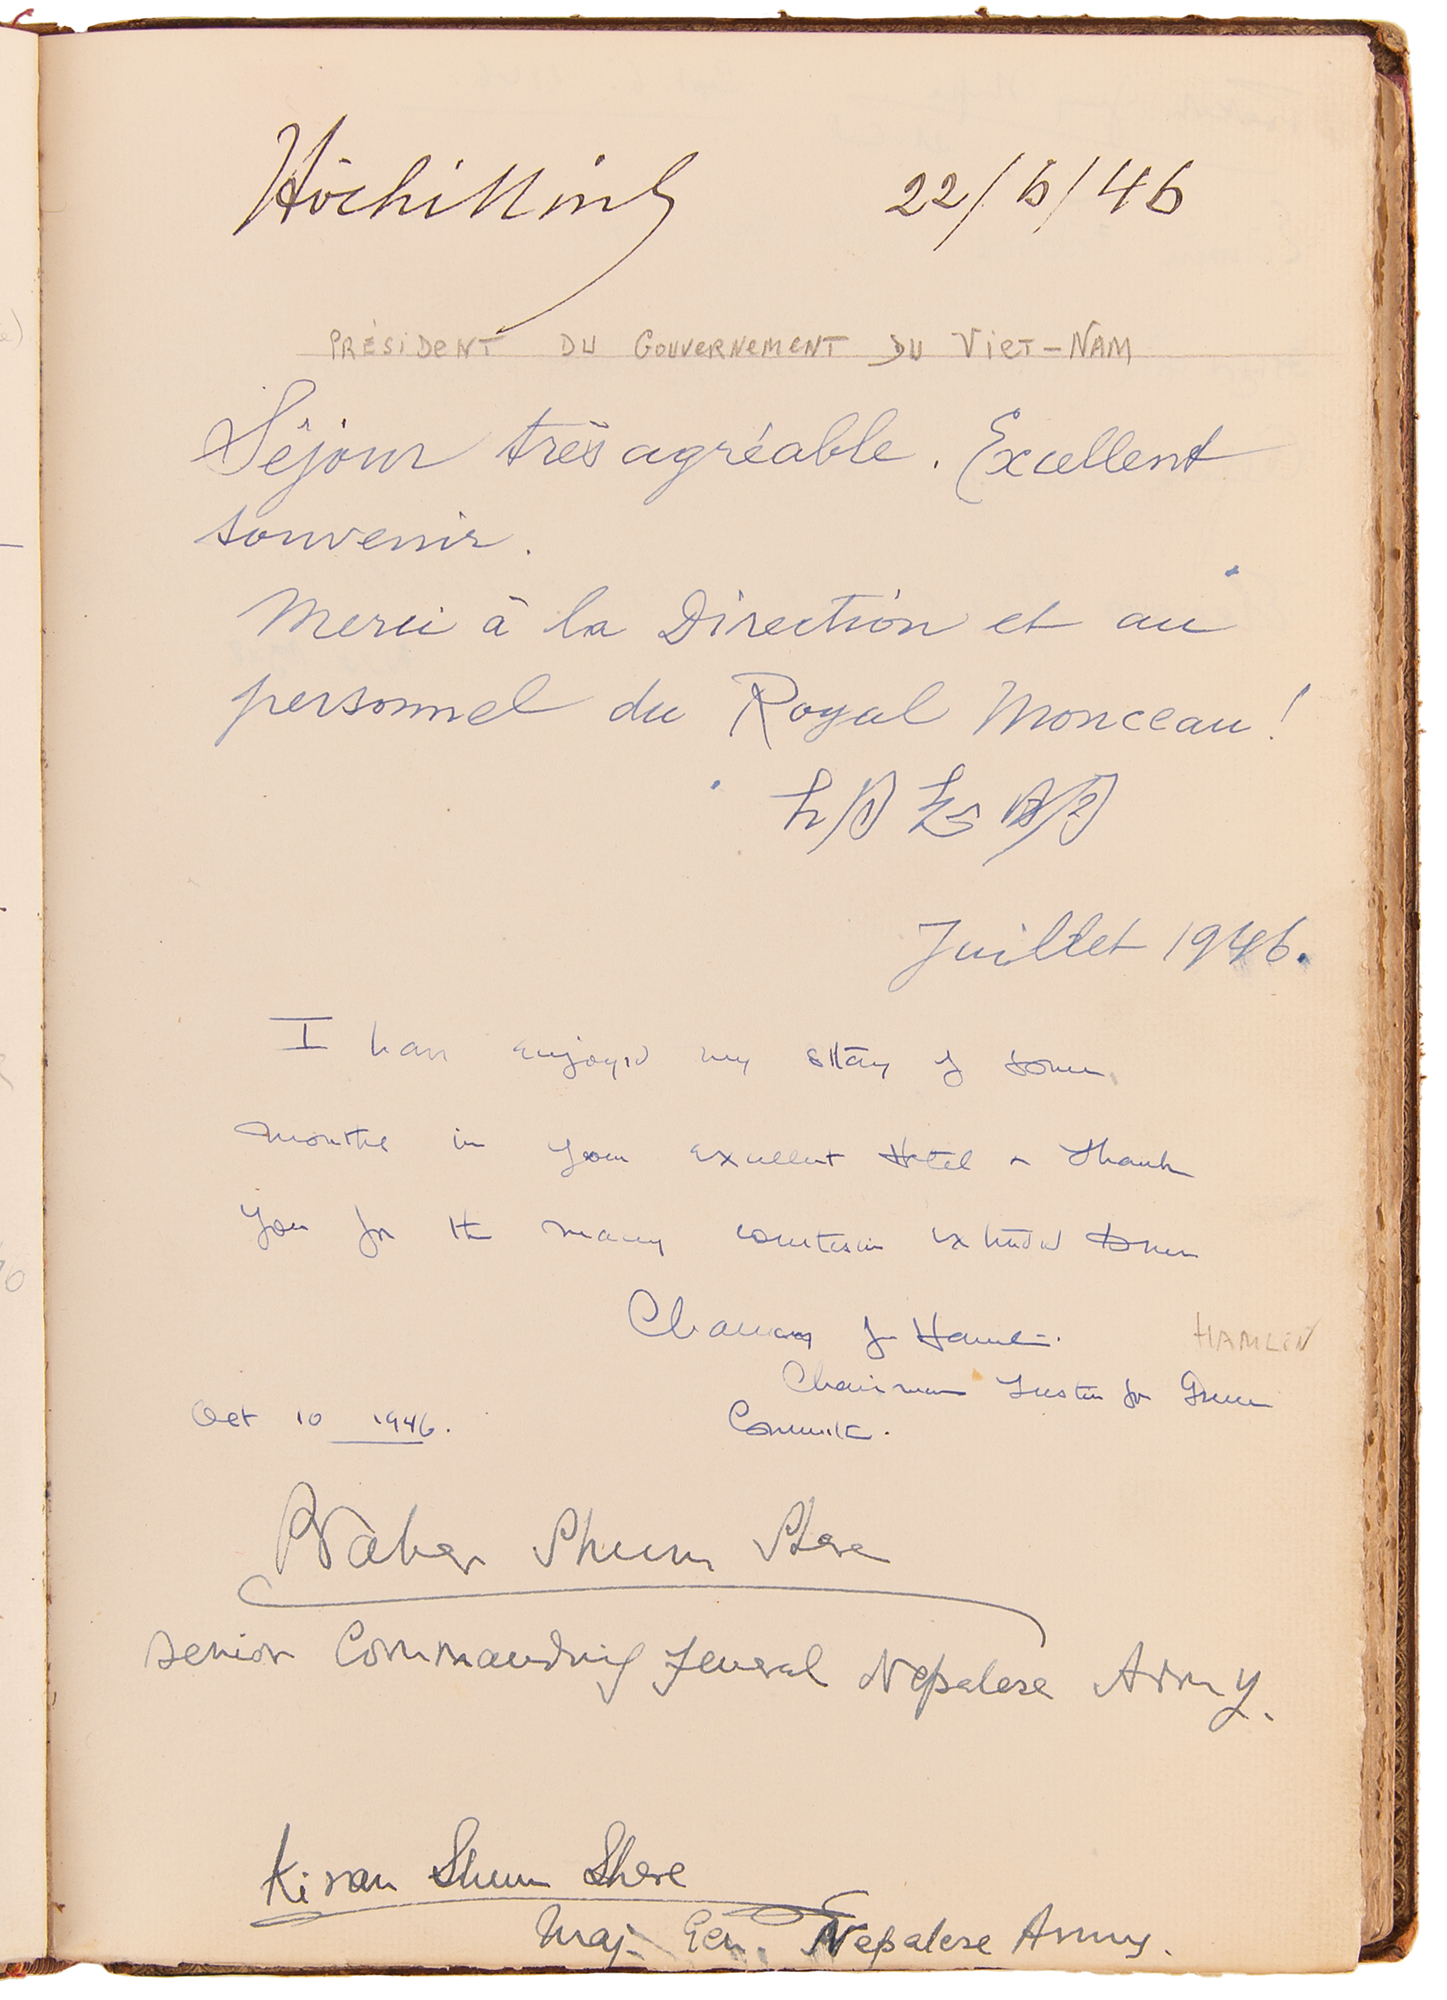 Hôchiminh 22/6/46
PRÉSIDENT DU GOUVERNEMENT DU VIET-NAM
Séjour très agréable. Excellent
souvenir.
Merci à la Direction et au
personnel du Royal Monceau!
Juillet 1946.
I have enjoyed my stay of some
months in your excellent Hotel & thank
you for the many courtesies extended to me
Chauncey J. Hamlin.
HAMLIN
Chairman
Oct 10 1946.
Committee.
Baber Shum Shere
Senior Commanding General Nepalese Army.
Kiran Shum Shere
Maj. Gen. Nepalese Army.